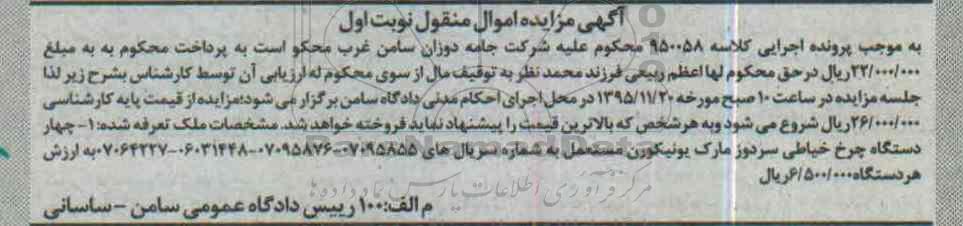 آگهی مزایده اموال منقول نوبت اول
به موجب پرونده اجرایی کلاسه ۹۵۰۰۵۸ محکوم علیه شرکت جامه دوزان سامن غرب محکو است به پرداخت محکوم به به مبلغ
۲۲/۰۰۰/۰۰۰ریال درحق محکوم لها اعظم ربیعی فرزند محمد نظر به توقیف مال از سوی محکوم له ارزیابی آن توسط کارشناس بشرح زیر لذا
جلسه مزایده در ساعت ۱۰ صبح مورخه ۱۳۹۵/۱۱/۲۰ در محل اجرای احکام مدنی دادگاه سامن برگزار می شود؛مزایده از قیمت پایه کارشناسی
۲۶/۰۰۰/۰۰۰ریال شروع می شود وبه هرشخص که بالاترین قیمت را پیشنهاد نماید فروخته خواهد شد. مشخصات ملک تعرفه شده: ۱- چهار
دستگاه چرخ خیاطی سردوز مارک یونیکورن مستعمل به شماره سریال های ۰۷۰۹۵۸۵۵-۰۷۰۹۵۸۷۶-۰۶۰۳۱۴۴۸-۰۷۰۶۴۲۲۷به ارزش
هردستگاه۶/۵۰۰/۰۰۰ریال
مرکز فرآوری اطلاعات پارس نماد داده ها
م الف:۱۰۰ رییس دادگاه عمومی سامن -ساسانی